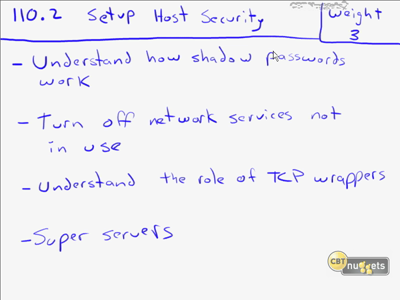 110.2 Setup Host Security
Weight
3
- Understand how shadow passwords
work
- Turn off network services not
in use
- Understand the role of TCP wrappers
- Super servers
CBT
nuggets